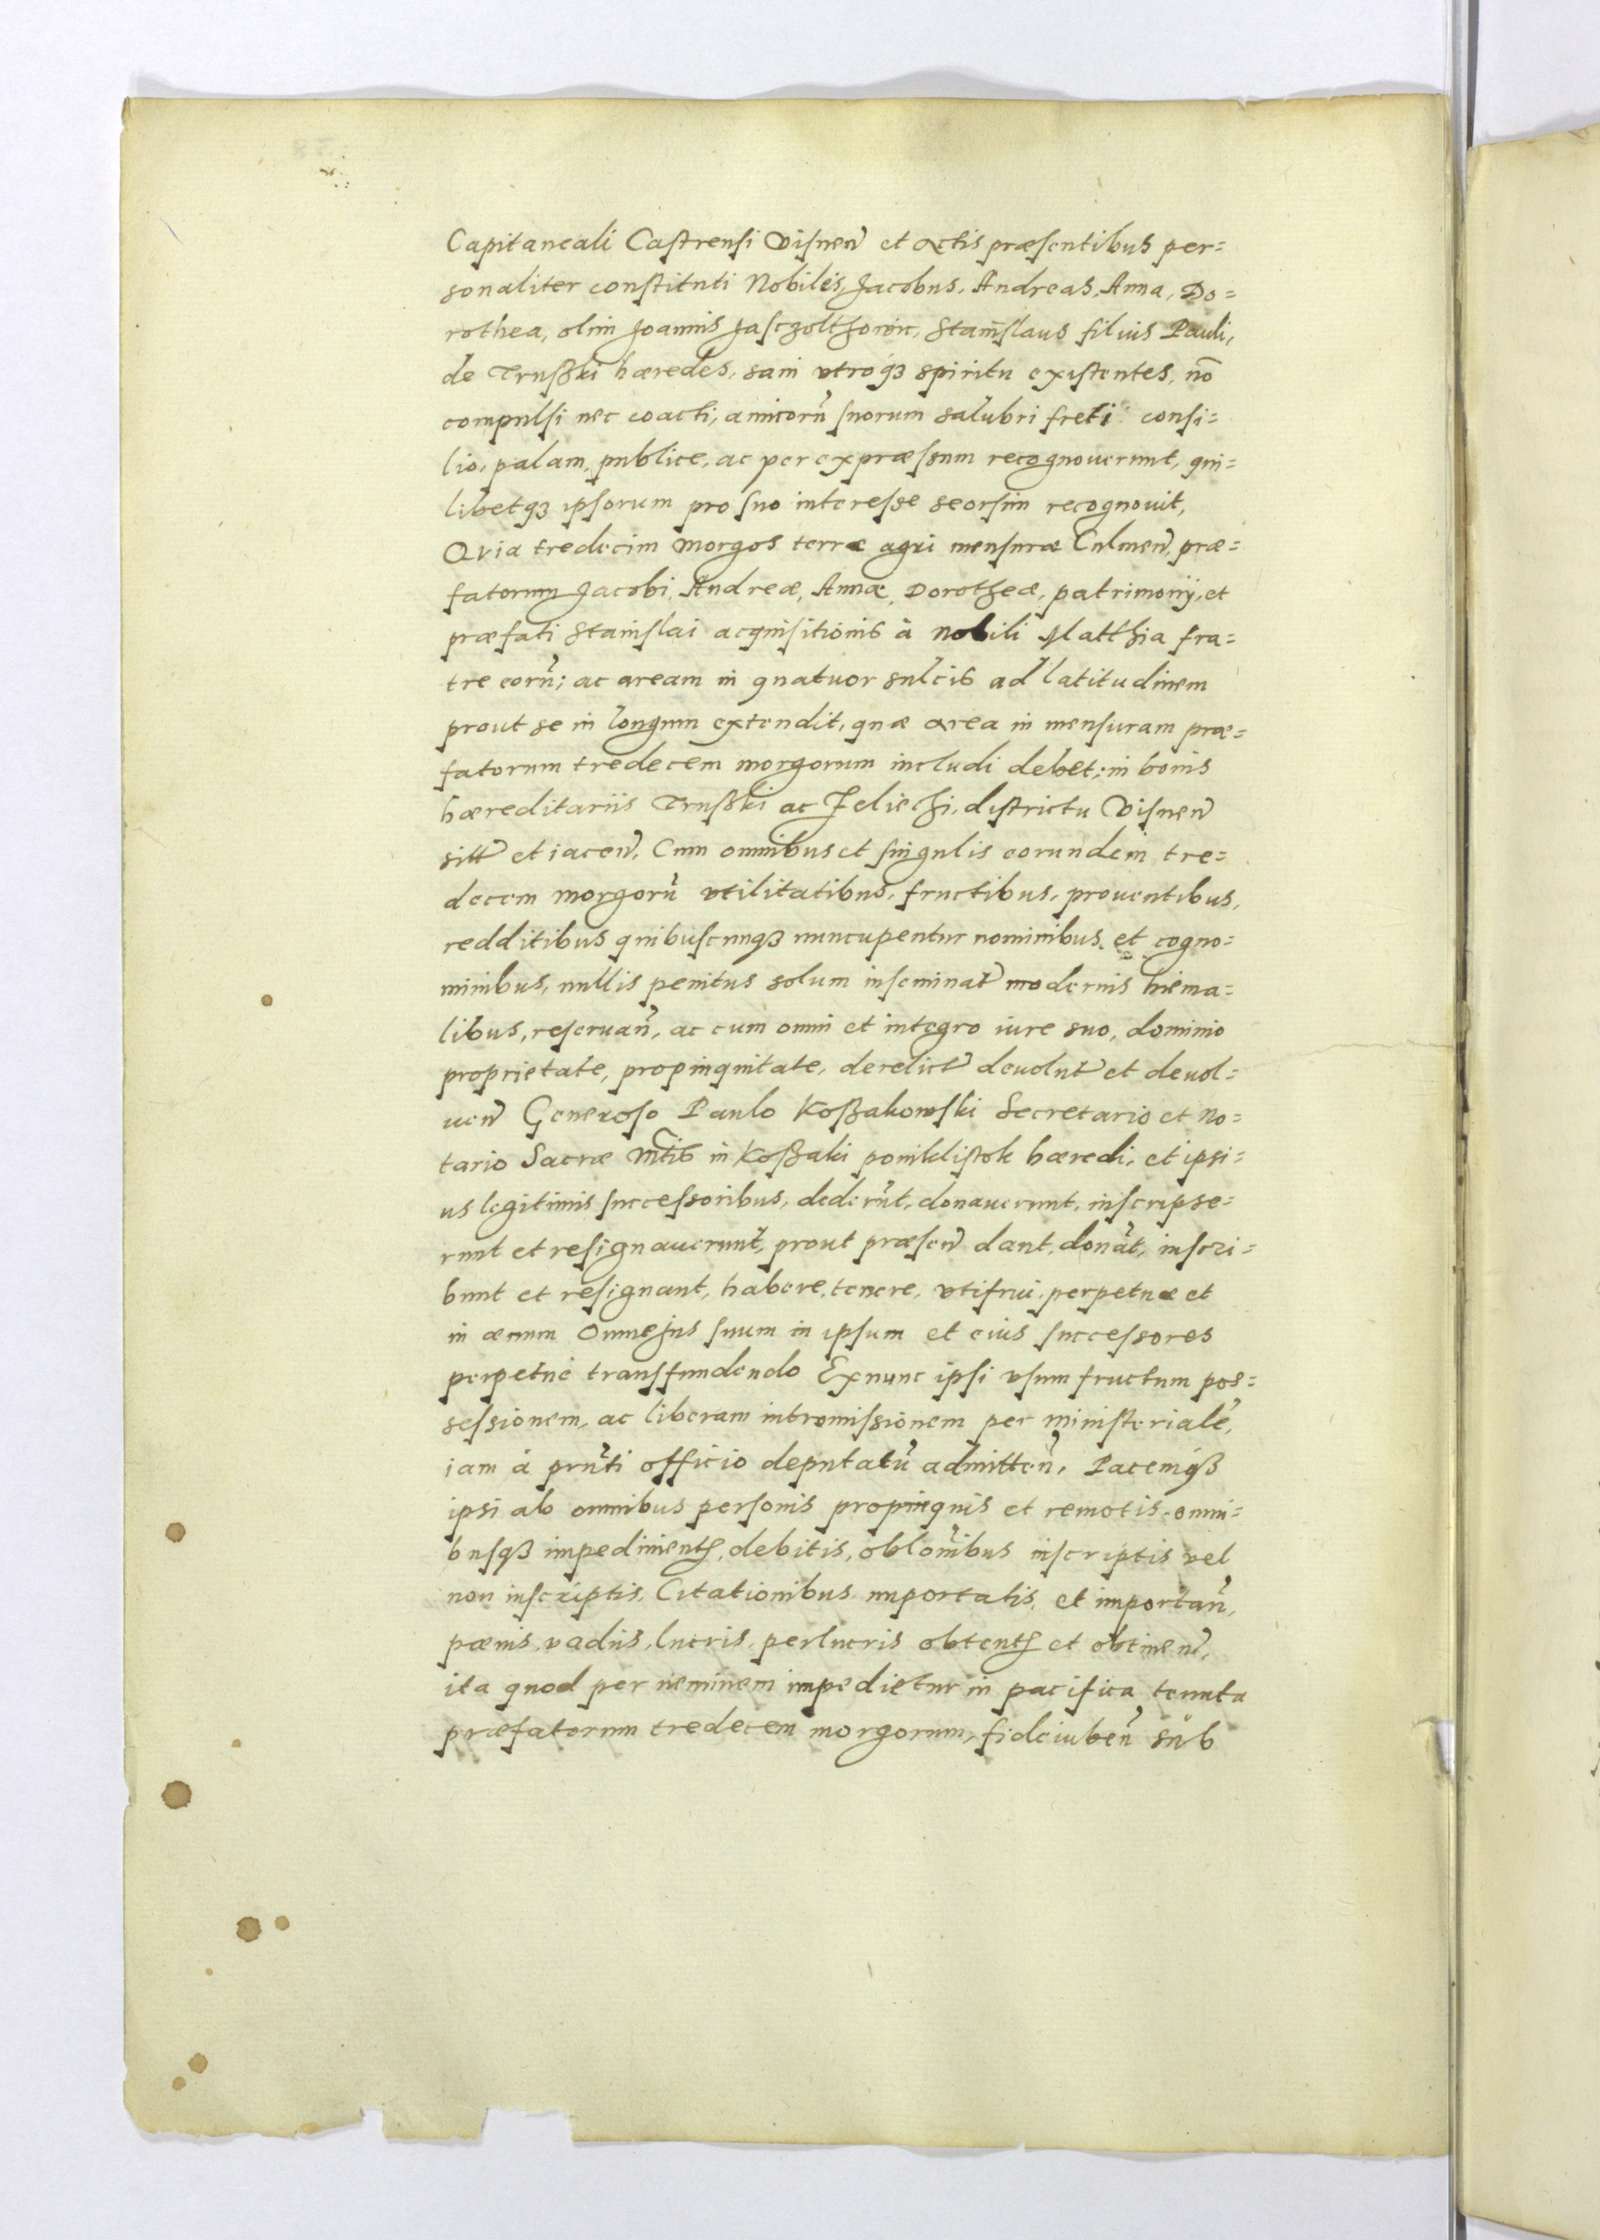 Capitaneali Castrensi Visneñ et Actis præsentibus per=
sonaliter constituti Nobiles, Jacobus, Andreas, Anna, Do=
rothea, olim Joannis Jasczolthowic, Stanislaus filius Pauli,
de Trußki hæredes, sani utroq3 spiritu existentes, nõ
compulsi nec coacti, amicorũ suorum salubri freti consi=
lio, palam, publice, ac per expræssum recognoverunt, qui=
libetq3 ipsorum pro suo interesse seorsim recognovit,
Qvia tredecim morgos terræ agri mensuræ Culmeñ, præ=
fatorum Jacobi, Andreæ, Annæ, Dorotheæ, patrimonij, et
præfati Stanislai acquisitionis à nobili Matthia fra=
tre eorũ; ac aream in quatuor sulcis ad latitudinem
prout se in longum extendit, quæ area in mensuram præ=
fatorum tredecem morgorum includi debet; in bonis
hæreditariis Trußki ac Zeliechi, districtu Visneñ
sitt̃ et iaceñ, Cum omnibus et singulis eorundem tre=
decem morgorũ vtilitatibus, fructibus, proventibus,
redditibus quibuscunq3 nuncupentur nominibus et cogno=
minibus, nullis penitus solum inseminat̃ modernis hiema=
libus, reservañ, ac cum omni et integro iure suo, dominio
proprietate, propinquitate, derelict̃ devolut̃ et devol=
veñ Generoso Paulo Koßakowski Secretario et No=
tario Sacræ Mtis in Koßaki poniklistok hæredi, et ipsi=
us legitimis successoribus, dederũt, donaverunt, inscripse=
runt et resignaverunt, prout præseñ dant, donãt, inscri=
bunt et resignant, habere, tenere, vtifrui, perpetuæ et
in ævum Omne jus suum in ipsum et eius successores
perpetue transfundendo Exnunc ipsi vsum fructum pos=
sessionem, ac liberam intromissionem per ministerialẽ,
iam à prñti officio deputatũ admitteñ, Pacemq3
ipsi ab omnibus personis propinquis et remotis, omni=
busq3 impediment, debitis, oblonibus inscriptis vel
non inscriptis, Citationibus importatis, et importañ,
pænis, vadiis, lucris, perlucris obtent et obtineñ,
ita quod per neminem impedietur in pacifica tenuta
præfatorum tredecem morgorum, fideiubeñ sub